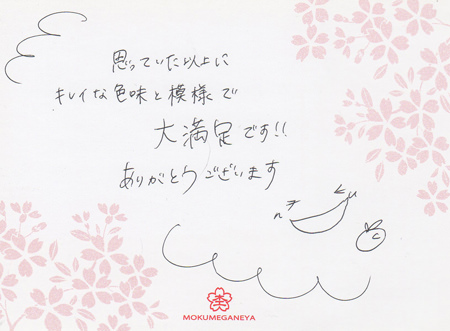 思っていた以上に
キレイな色味と模様で
大満足です!!
ありがとうございます
MOKUMEGANEYA